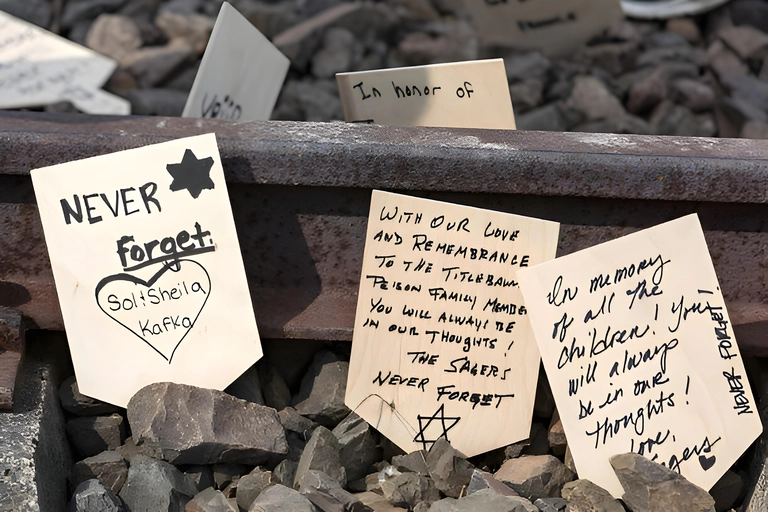 In honor of
NEVER
forget.
Sol & Sheila
Kafka
WITH OUR LOVE
AND REMEMBRANCE
TO THE TITLEBAUM
PEISON FAMILY MEMBER
YOU WILL ALWAYS BE
IN OUR THOUGHTS!
THE SAGERS
NEVER FORGET
In memory
of all the
children! You
will always
be in our
thoughts!
Love,
NEVER FORGET!